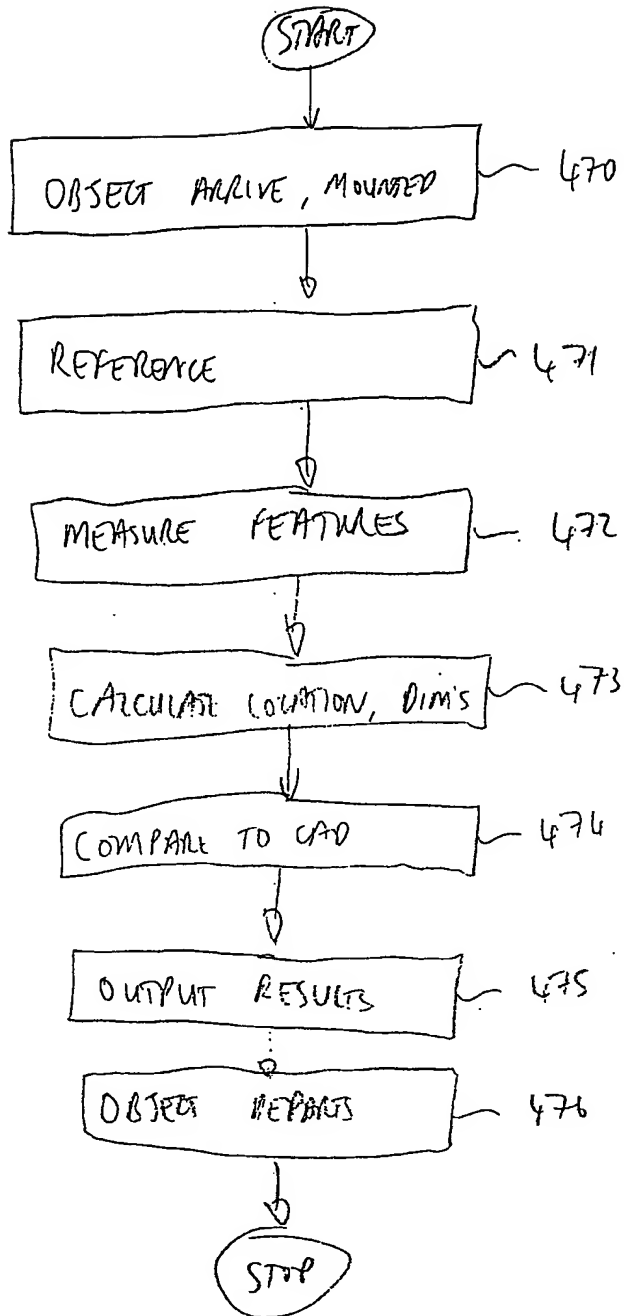 START
OBJECT ARRIVE, MOUNTED
470
REFERENCE
471
MEASURE FEATURES
472
CALCULATE LOCATION, DIM'S
473
COMPARE TO CAD
474
OUTPUT RESULTS
475
OBJECT DEPARTS
476
STOP